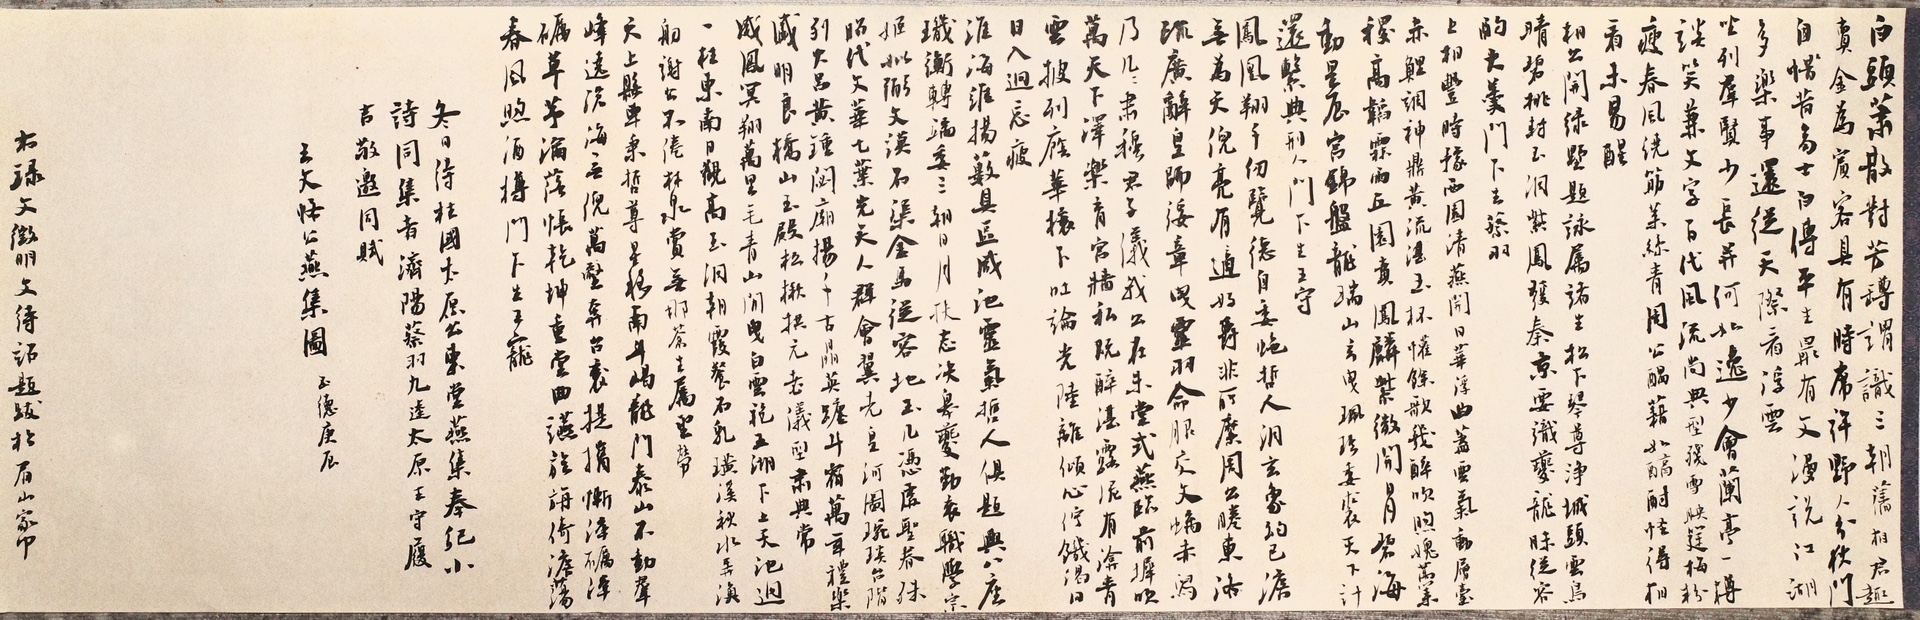 白頭蕭散對芳樽謂識三朝舊相君趣
賣金為賓客具有時席許野人分狄門
自惜昔高士白傅平生最有文漫說江湖
多樂事還從天際看浮雲
坐列羣賢少長并何如逸少會蘭亭一樽
談笑兼文字百代風流尚典型殘雪映筵梅粉
瘦春風繞筋菜絲青周公醞藉如醇酎怪得相
看未易醒
相公開綠墅題詠屬諸生松下琴尊淨城頭雲鳥
晴碧桃封玉洞紫鳳發秦京要識夔龍昧從容
酌大羹門下士蔡羽
上相豐時豫西園清燕開日華浮曲蓋雲氣動層臺
赤鯉調神鼎黃流湛玉杯懽餘歌伐醉吹煦媿萬萊
稷高韜霖雨丘園賁鳳麟紫微開月碧海
動星辰宮錦盤龍瑞山玄曳珮珍委裘天下計
還繫典刑人門下生王守
鳳凰翔千仞覽德自委蛇哲人洞玄象約己澹
無為天倪亮有適好爵非所縻周公賦東洛
疏廣辭皇師綏章曳靈羽命服交文螭赤舄
乃几几肅穆君子儀我公在東堂式燕臨前墀吹
萬天下澤樂育宮牆私既醉湛露泥有渰青
雲披列筵華榱下吐論光陸離傾心佇饑渴日
日入迴忘疲
淮海維揚藪具區咸池靈氣哲人俱題輿八座
璣衡轉端委三朝日月扶志決皋夔勤袞職學宗
姬姒弼文謨石渠金馬從容地玉几憑虛聖眷殊
昭代文華七葉光天人群會翼先皇河圖琬琰台階
列大呂黃鍾閟廟揚千古鼎英躔斗宿萬年禮樂
盛明良橋山玉殿松楸拱元老儀型肅典常
威鳳冥翔萬里毛青山閒曳白雲袍五湖下上天池迥
一柱東南日觀高玉洞朝霞餐石乳璜溪秋水弄漁
舠謝公不倦林泉賞無那蒼生屬望勞
天上懸車秉哲尊星移南斗竭龍門泰山不動羣
峰遠滄海無倪萬壑奔台袞提攜慚淬礪淬
礪草茅滿蓆帳乾坤重堂曲讌旌旃倚澹蕩
春風煦酒樽門下生王寵
冬日侍柱國太原公東堂燕集奉紀小
詩同集者濟陽蔡羽九逵太原王守履
吉敬邀同賦
王文恪公燕集圖 正德庚辰
右錄文徵明文待詔題跋松眉山家印